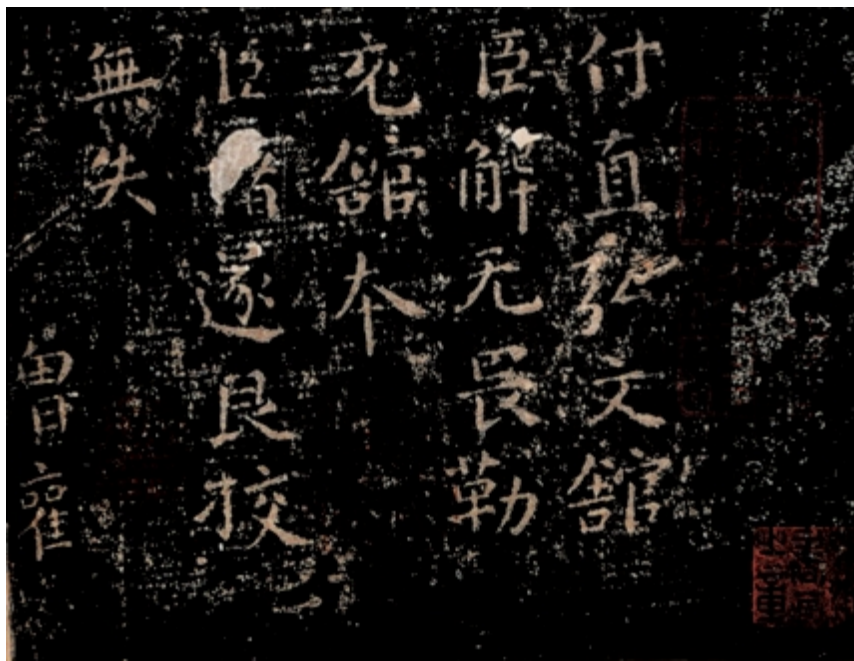 付直弘文舘
臣解无畏勒
充舘本
臣褚遂良校
無失
曾雚